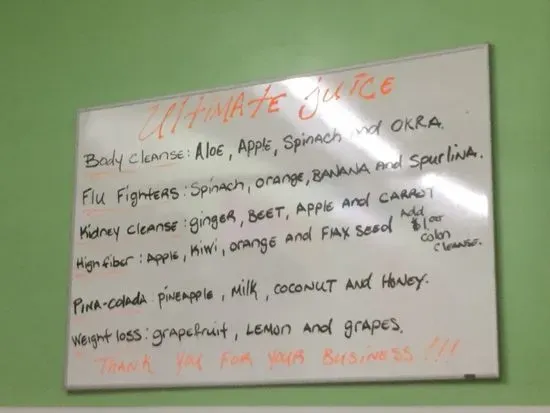 Ultimate Juice
Body Cleanse: Aloe, Apple, Spinach and OKRA.
Flu Fighters: Spinach, orange, BANANA and Spurlina.
Kidney Cleanse: ginger, BEET, Apple and CARROT
High fiber: Apple, Kiwi, orange and Flax Seed
Add
$1.00
colon
cleanse.
Pina-colada: pineapple, Milk, coconut and Honey.
Weight loss: grapefruit, Lemon and grapes.
THANK YOU FOR YOUR BUSINESS!!!